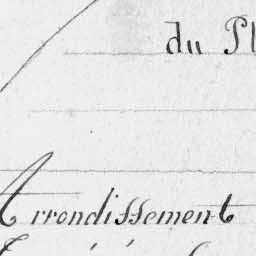 du Pl
Arrondissement